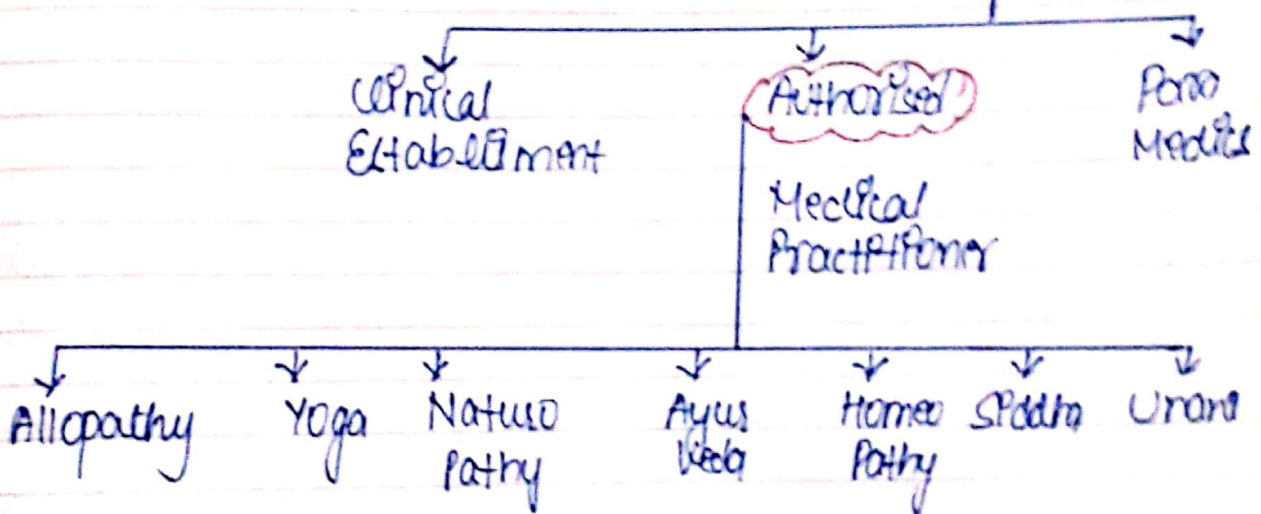 Clinical
Establishment
Authorised
Medical
Practitioner
Para
Medics
Allopathy
Yoga
Naturo
Pathy
Ayur
Veda
Homeo
Pathy
Siddha
Unani